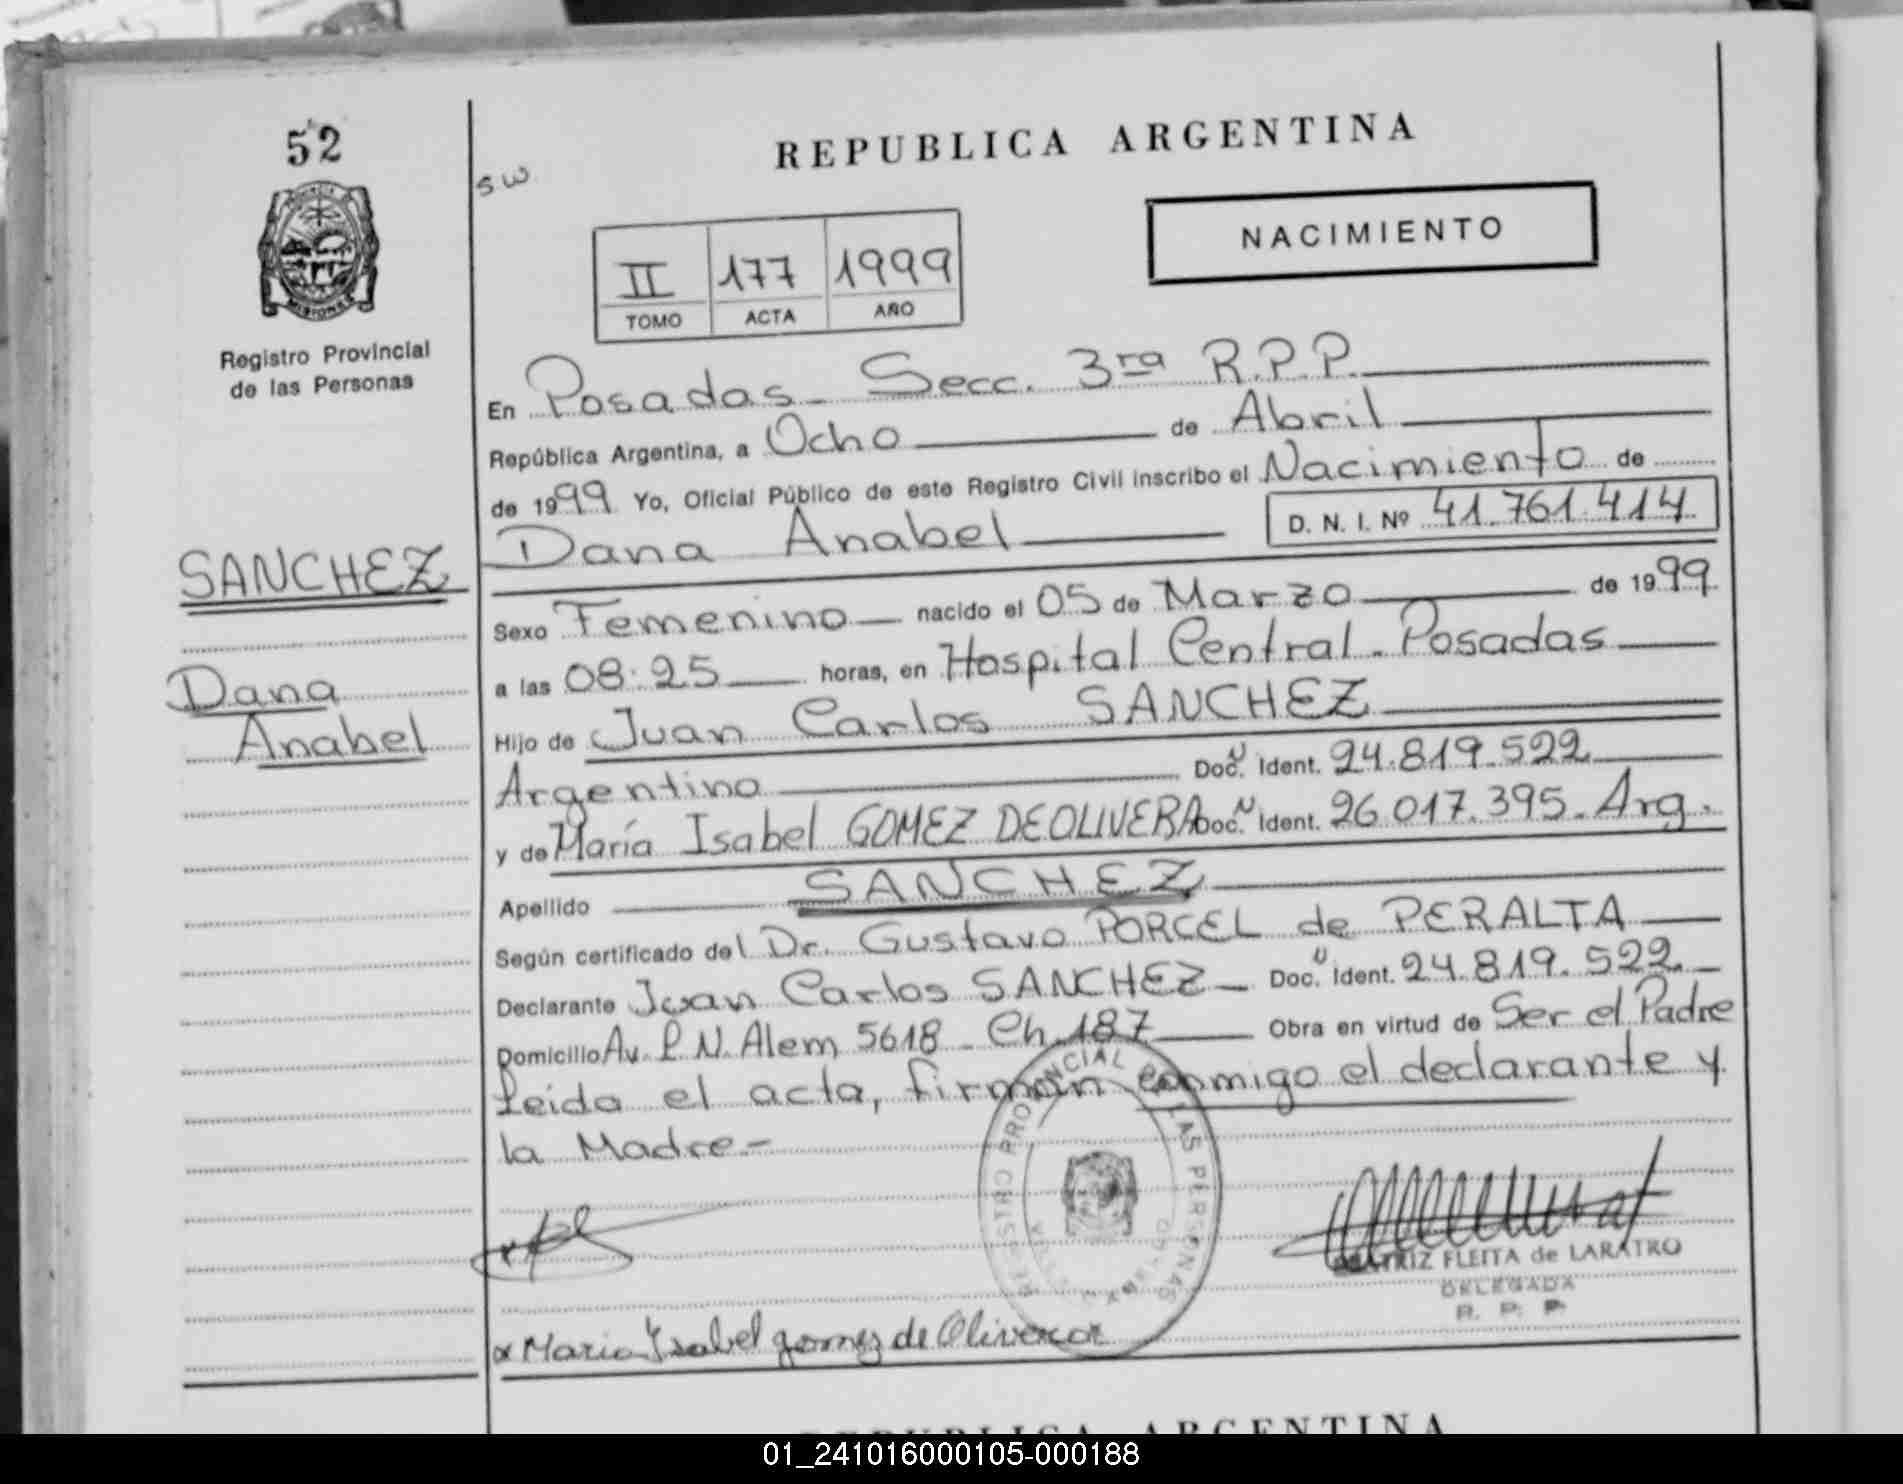 52
Registro Provincial
de las Personas
SANCHEZ
Dana
Anabel
REPUBLICA ARGENTINA
SW
NACIMIENTO
II 177 1999
TOMO ACTA AÑO
En Posadas - Secc. 3ra R.P.P.
República Argentina, a Ocho de Abril
de 1999 Yo, Oficial Público de este Registro Civil inscribo el Nacimiento de
Dana Anabel D. N. I. Nº 41.761.414
Sexo Femenino nacido el 05 de Marzo de 1999
a las 08:25 horas, en Hospital Central - Posadas
Hijo de Juan Carlos SANCHEZ
Argentino Doc. Ident. 24.819.522
y de María Isabel GOMEZ DE OLIVERA Doc. Ident. 26.017.395 - Arg.
Apellido SANCHEZ
Según certificado del Dr. Gustavo PORCEL de PERALTA
Declarante Juan Carlos SANCHEZ - Doc. Ident. 24.819.522 -
Domicilio Av. L N. Alem 5618 - Ch. 187 Obra en virtud de Ser el Padre
Leida el acta, firman conmigo el declarante y
la Madre -
REGISTRO PROVINCIAL DE LAS PERSONAS
BEATRIZ FLEITA de LARATRO
DELEGADA
R. P. P.
x Maria Isabel gomez de Olivera
REPUBLICA ARGENTINA
01_241016000105-000188